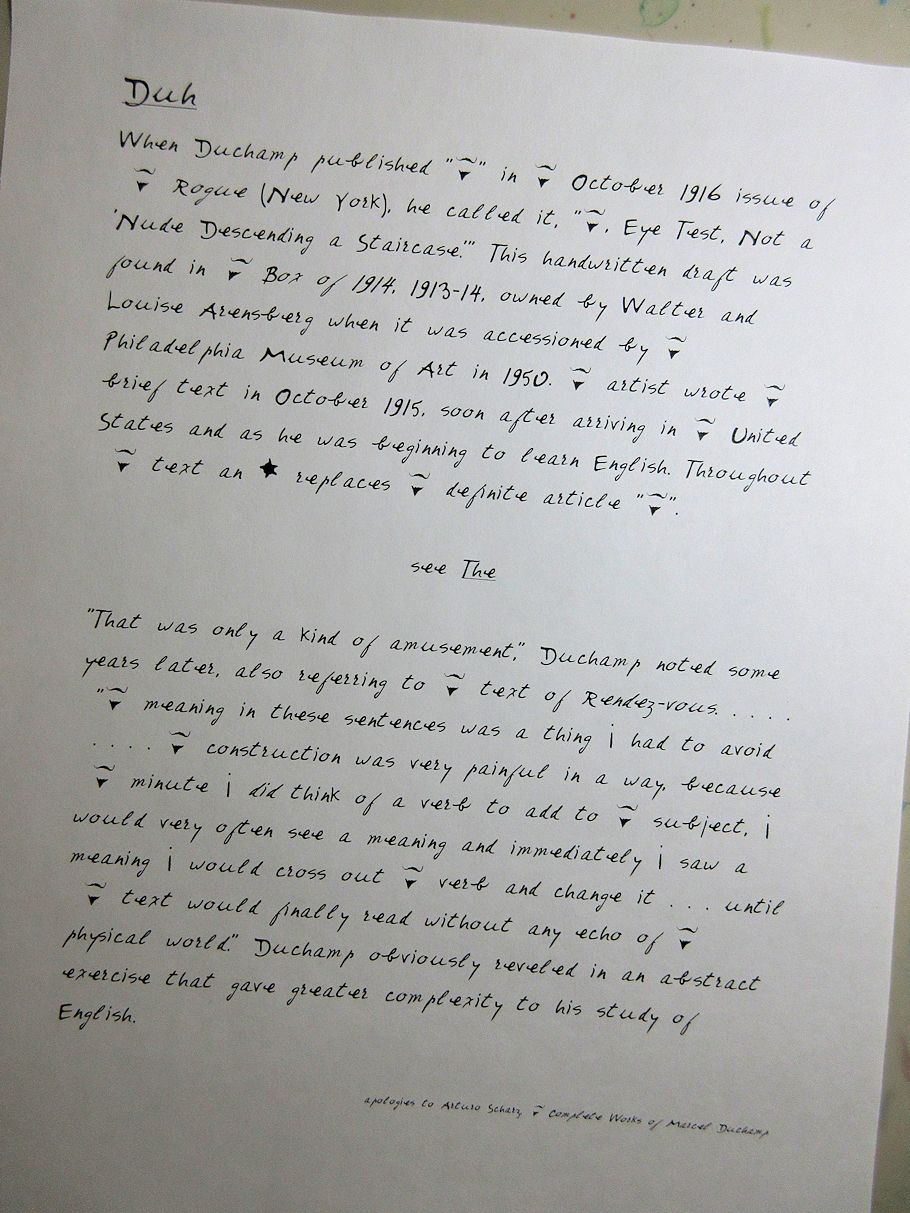 Duh
When Duchamp published "⁓▾" in ⁓▾ October 1916 issue of
⁓▾ Rogue (New York), he called it, "⁓▾, Eye Test, Not a
'Nude Descending a Staircase.'" This handwritten draft was
found in ⁓▾ Box of 1914, 1913-14, owned by Walter and
Louise Arensberg when it was accessioned by ⁓▾
Philadelphia Museum of Art in 1950. ⁓▾ artist wrote ⁓▾
brief text in October 1915, soon after arriving in ⁓▾ United
States and as he was beginning to learn English. Throughout
⁓▾ text an ★ replaces ⁓▾ definite article "⁓▾".
see The
"That was only a kind of amusement," Duchamp noted some
years later, also referring to ⁓▾ text of Rendez-vous. . . . .
"⁓▾ meaning in these sentences was a thing i had to avoid
. . . . ⁓▾ construction was very painful in a way, because
⁓▾ minute i did think of a verb to add to ⁓▾ subject, i
would very often see a meaning and immediately i saw a
meaning i would cross out ⁓▾ verb and change it . . . until
⁓▾ text would finally read without any echo of ⁓▾
physical world." Duchamp obviously reveled in an abstract
exercise that gave greater complexity to his study of
English.
apologies to Arturo Scharz ⁓▾ Complete Works of Marcel Duchamp